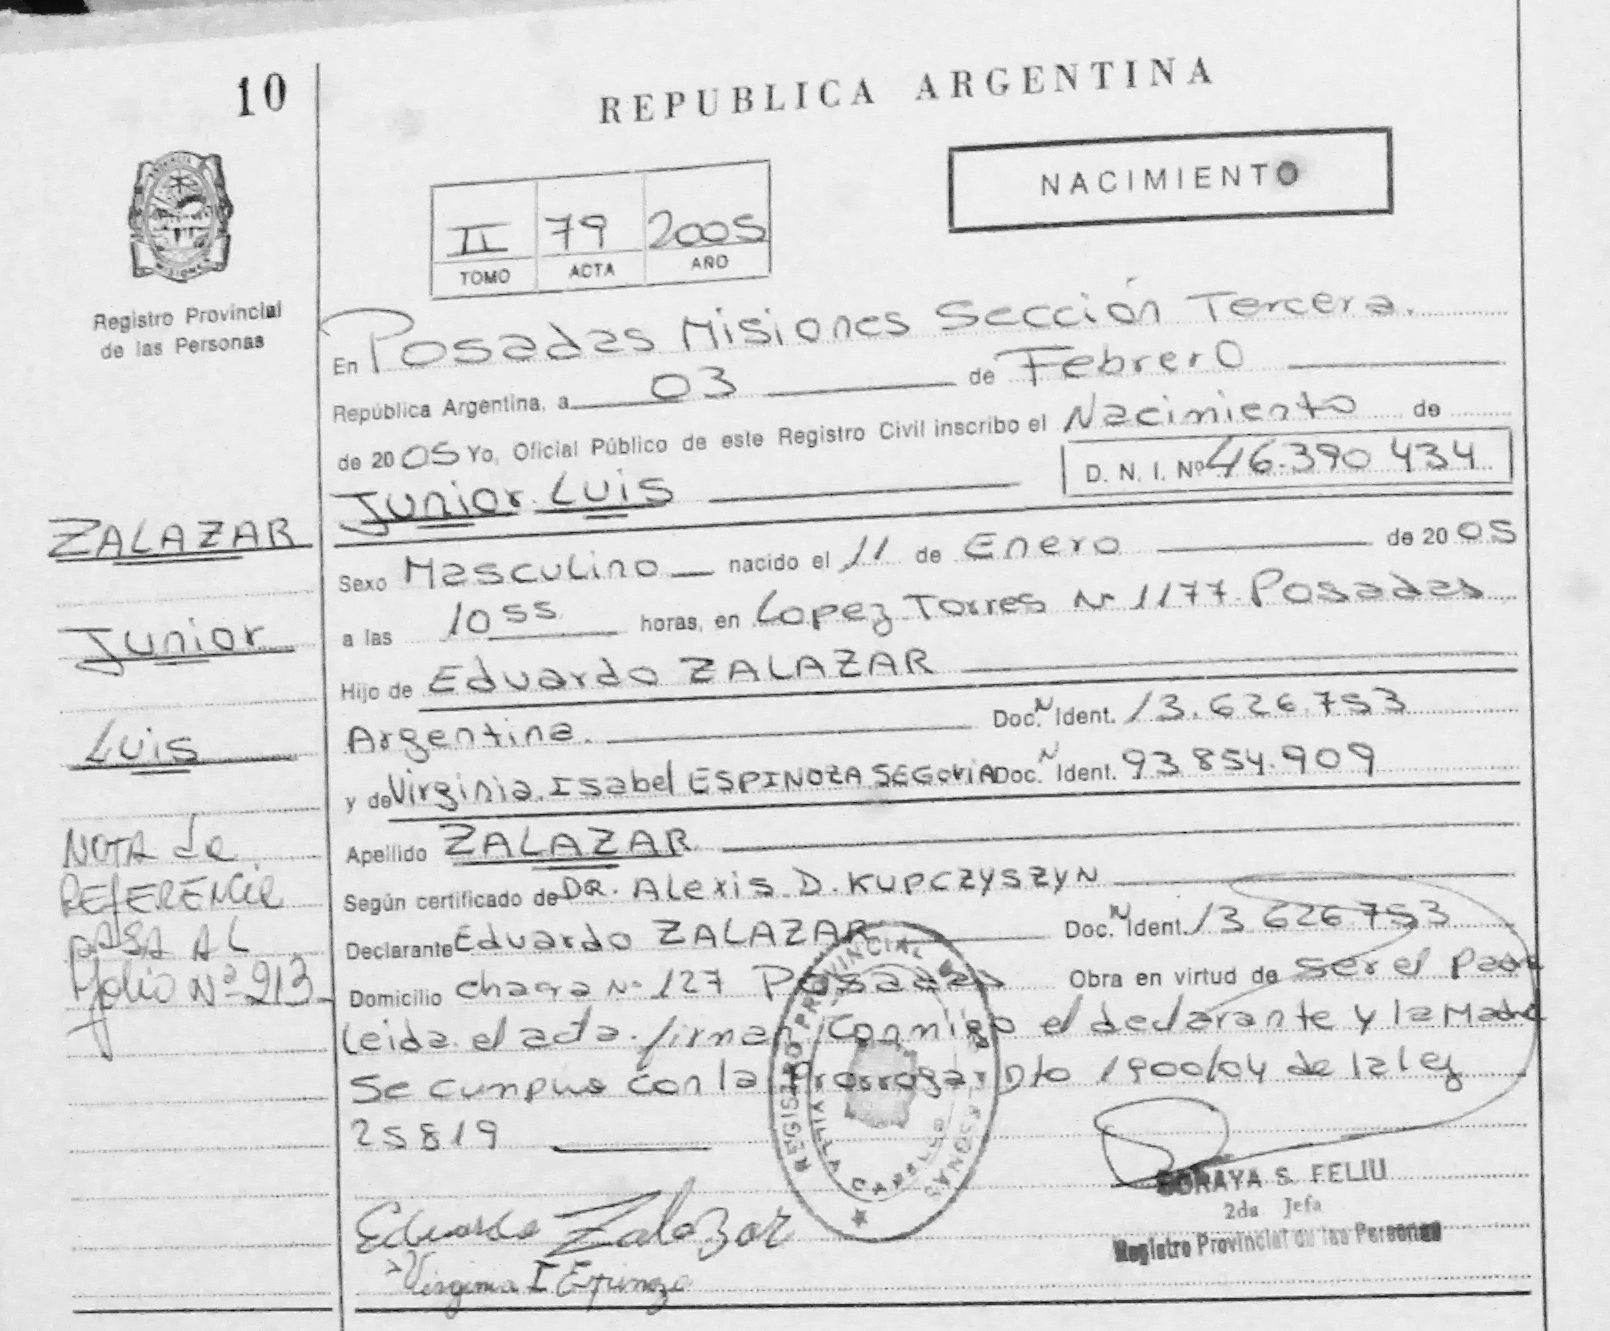 10
REPUBLICA ARGENTINA
NACIMIENTO
II 79 2005
TOMO ACTA AÑO
Registro Provincial
de las Personas
En Posadas Misiones Sección Tercera.
República Argentina, a 03 de Febrero
de 2005 Yo, Oficial Público de este Registro Civil inscribo el Nacimiento de
Junior Luis D. N. I. Nº 46.390 434
ZALAZAR
Junior
Luis
Sexo Masculino nacido el 11 de Enero de 2005
a las 10 55 horas, en Lopez Torres Nº 1177 Posadas
Hijo de Eduardo ZALAZAR
Argentina. Doc. N Ident. 13.626.753
y de Virginia Isabel ESPINOZA SEGOVIA Doc. N Ident. 93 854.909
Apellido ZALAZAR
Según certificado de DR. Alexis D. KUPCZYSZYN
Declarante Eduardo ZALAZAR Doc. N Ident. 13 626 753
Domicilio chacra Nº 127 Posadas Obra en virtud de ser el Padre
Leida el acta firman conmigo el declarante y la Madre
Se cumplio con la Prorroga Dto 1900/04 de la ley
25819
NOTA de
REFERENCIA
PASA AL
folio Nº 213
REGISTRO PROVINCIAL DE LAS PERSONAS
VILLA CABELLO
Eduardo Zalazar
Virginia I Espinoza
SORAYA S. FELIU
2da Jefa
Registro Provincial de las Personas